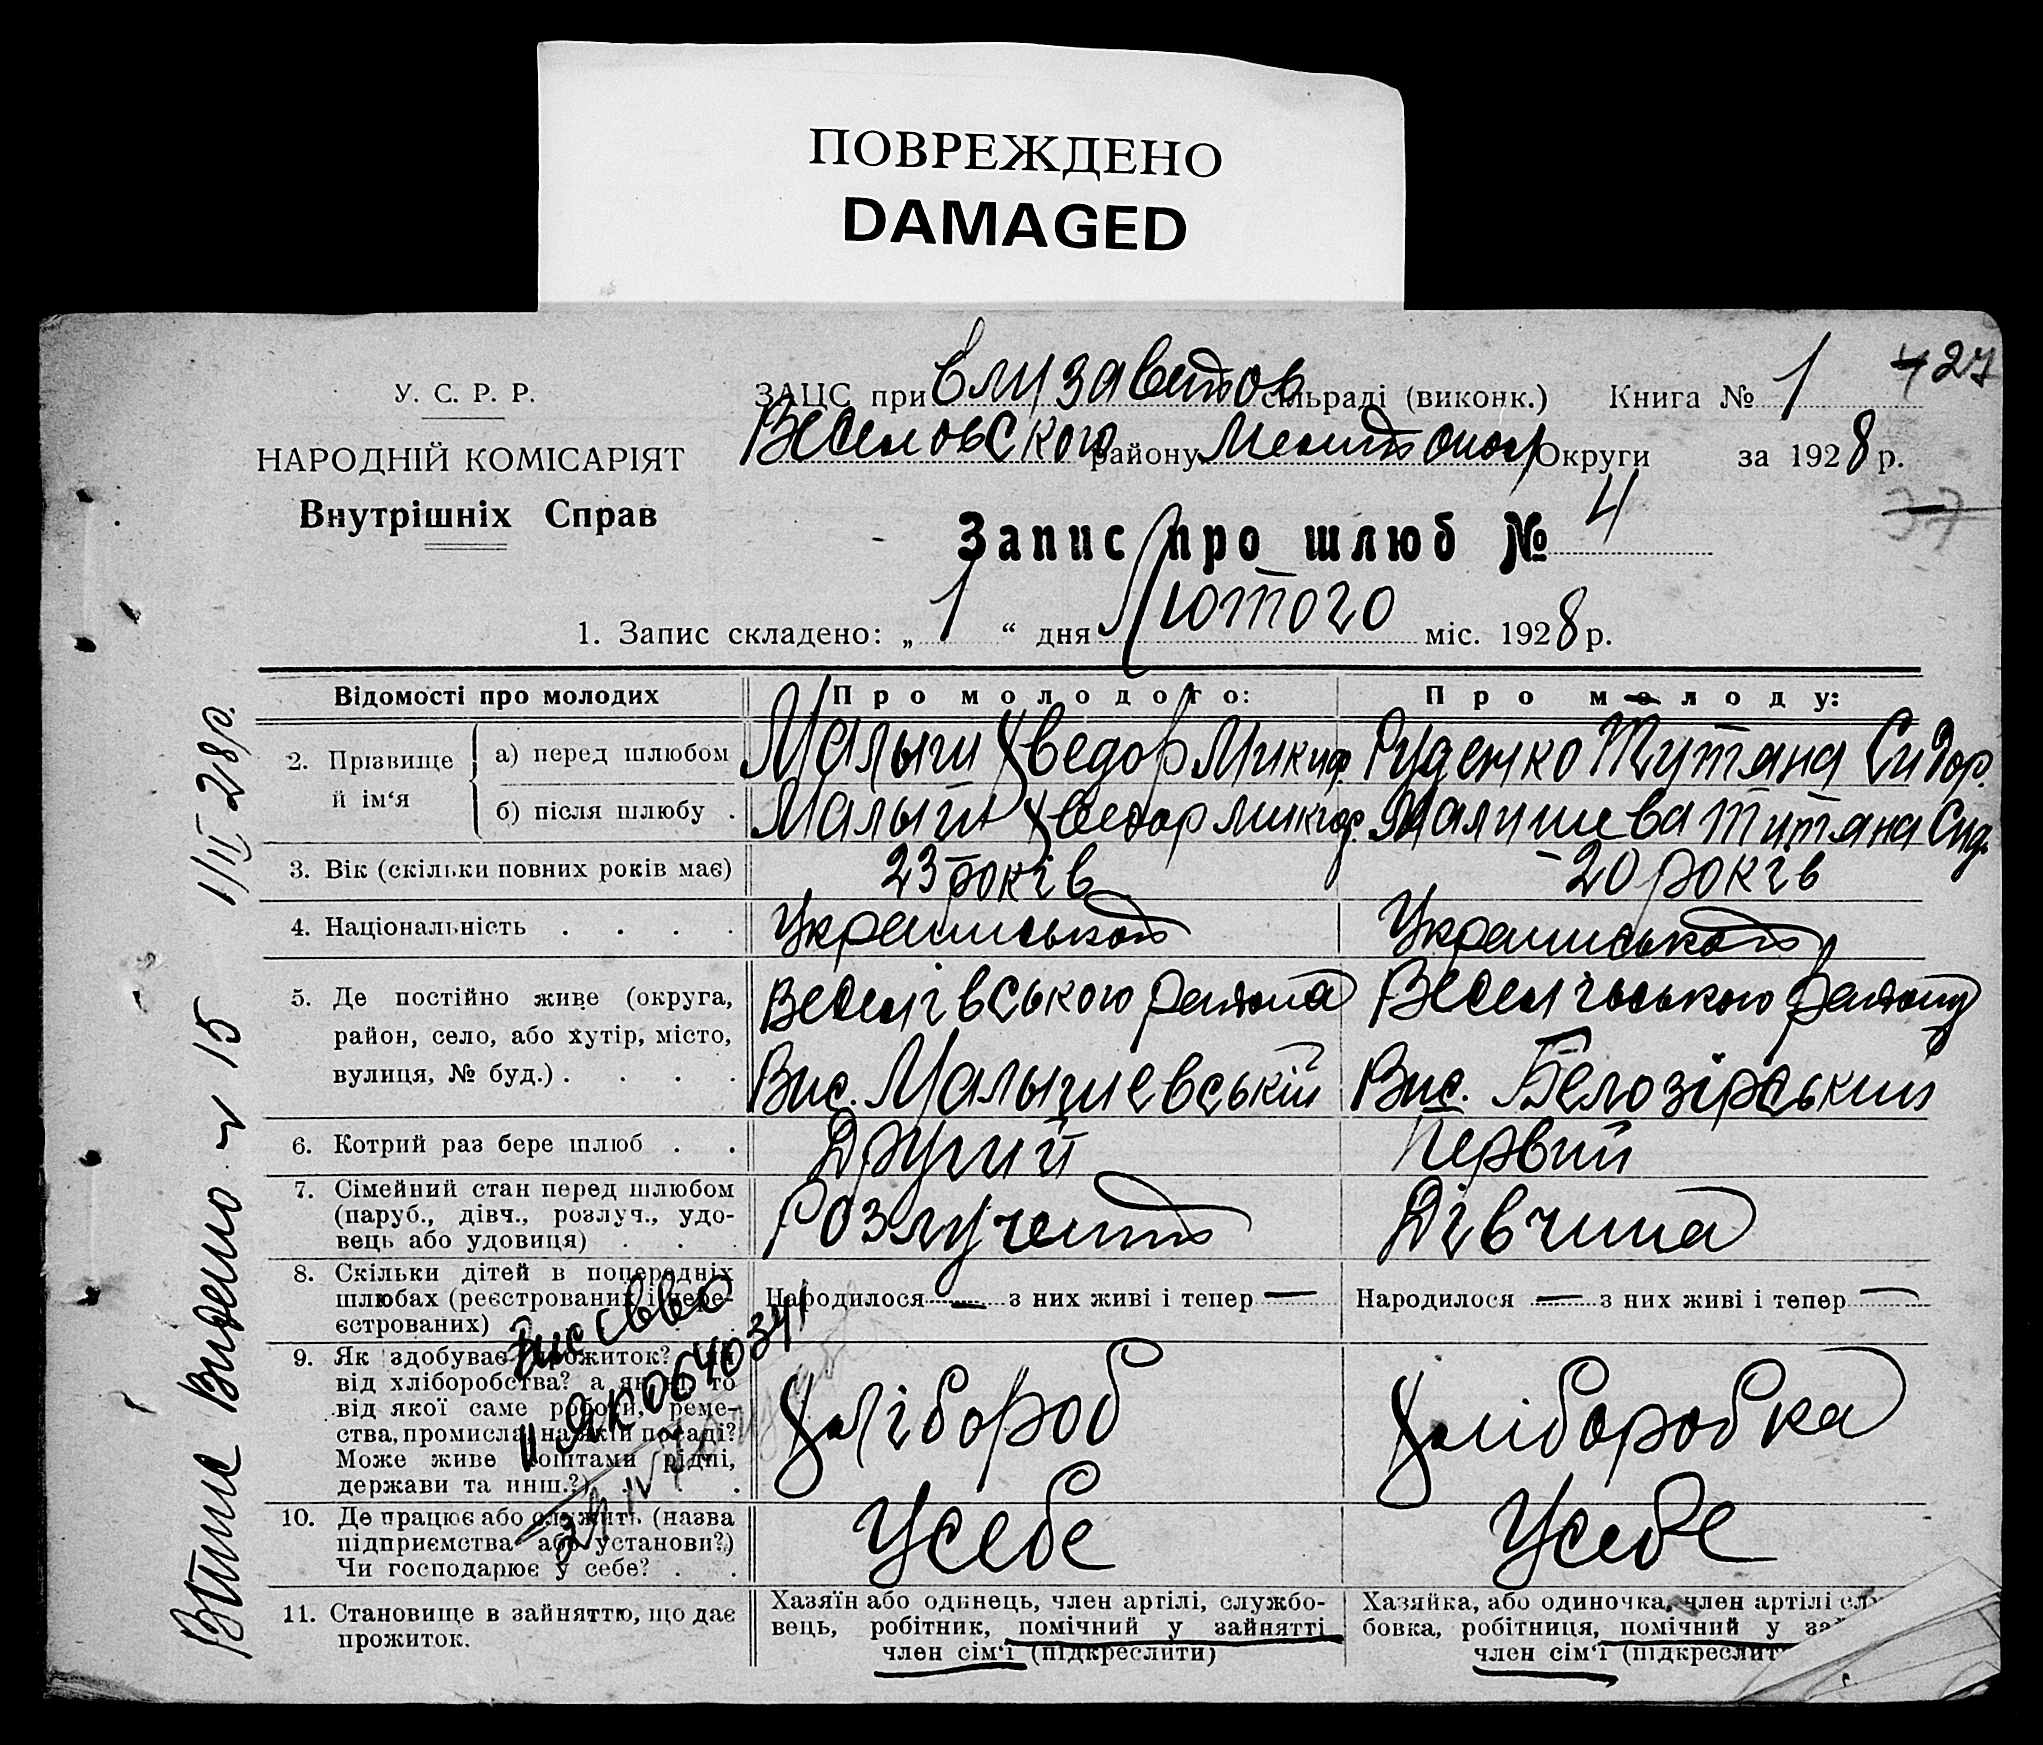 ПОВРЕЖДЕНО
DAMAGED
У. С. Р. Р.
НАРОДНІЙ КОМІСАРІЯТ
Внутрішніх Справ
ЗАЦС при Єлизаветов сільраді (виконк.) Книга № 1 427
Веселовского району Мелитопол Округи за 1928 р.
37
Запис про шлюб № 4
1. Запис складено: „ 1 “ дня Лютого міс. 1928 р.
Відомості про молодих Про молодого: Про молоду:
2. Прізвище й ім‘я
а) перед шлюбом Малыш Хведор Микиф. Руденко Тутяна Сидор.
б) після шлюбу . Малыш Хведор Микиф. Малишева Титяна Сид.
3. Вік (скільки повних років має) 23 років 20 років
4. Національність . . . . Украинськой Украинськой
5. Де постійно живе (округа, район, село, або хутір, місто, вулиця, № буд.) . . . .
Веселівського района
Вис. Малышевській
Веселівського району
Вис. Белозірський
6. Котрий раз бере шлюб . . Другий Первий
7. Сімейний стан перед шлюбом
(паруб., дівч., розлуч., удо-
вець або удовиця) . . .
Розлучений Дівчина
8. Скільки дітей в попередніх
шлюбах (реєстрованих і нере-
єстрованих)
Народилося — з них живі і тепер — Народилося — з них живі і тепер —
9. Як здобуває прожиток?
від хліборобства? а як ні, то
від якої саме роботи, реме-
ства, промисла, на якій посаді?
Може живе коштами рідні,
держави та инш.?)
Хлібороб Хліборобка
10. Де працює або служить (назва
підприємства або установи?)
Чи господарює у себе? . .
Усебе Усебе
11. Становище в зайняттю, що дає
прожиток.
Хазяїн або одинець, член артілі, службо-
вець, робітник, помічний у зайнятті
член сім‘ї (підкреслити)
Хазяйка, або одиночка, член артілі слу
бовка, робітниця, помічний у за
член сім‘ї (підкреслит
Витис Видано 15 1/II 28 р.